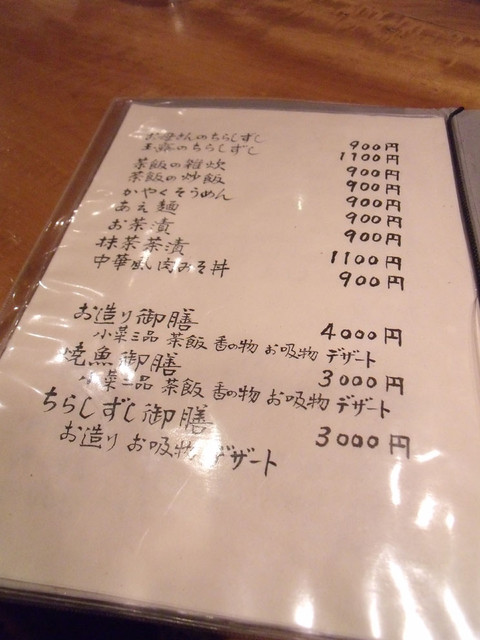 お母さんのちらしずし 900円
玉露のちらしずし 1100円
茶飯の雑炊 900円
茶飯の炒飯 900円
かやくそうめん 900円
あえ麺 900円
お茶漬 900円
抹茶茶漬 1100円
中華風肉みそ丼 900円
お造り御膳 4000円
小菜三品 茶飯 香の物 お吸物 デザート
焼魚御膳 3000円
小菜二品 茶飯 香の物 お吸物 デザート
ちらしずし御膳 3000円
お造り お吸物 デザート